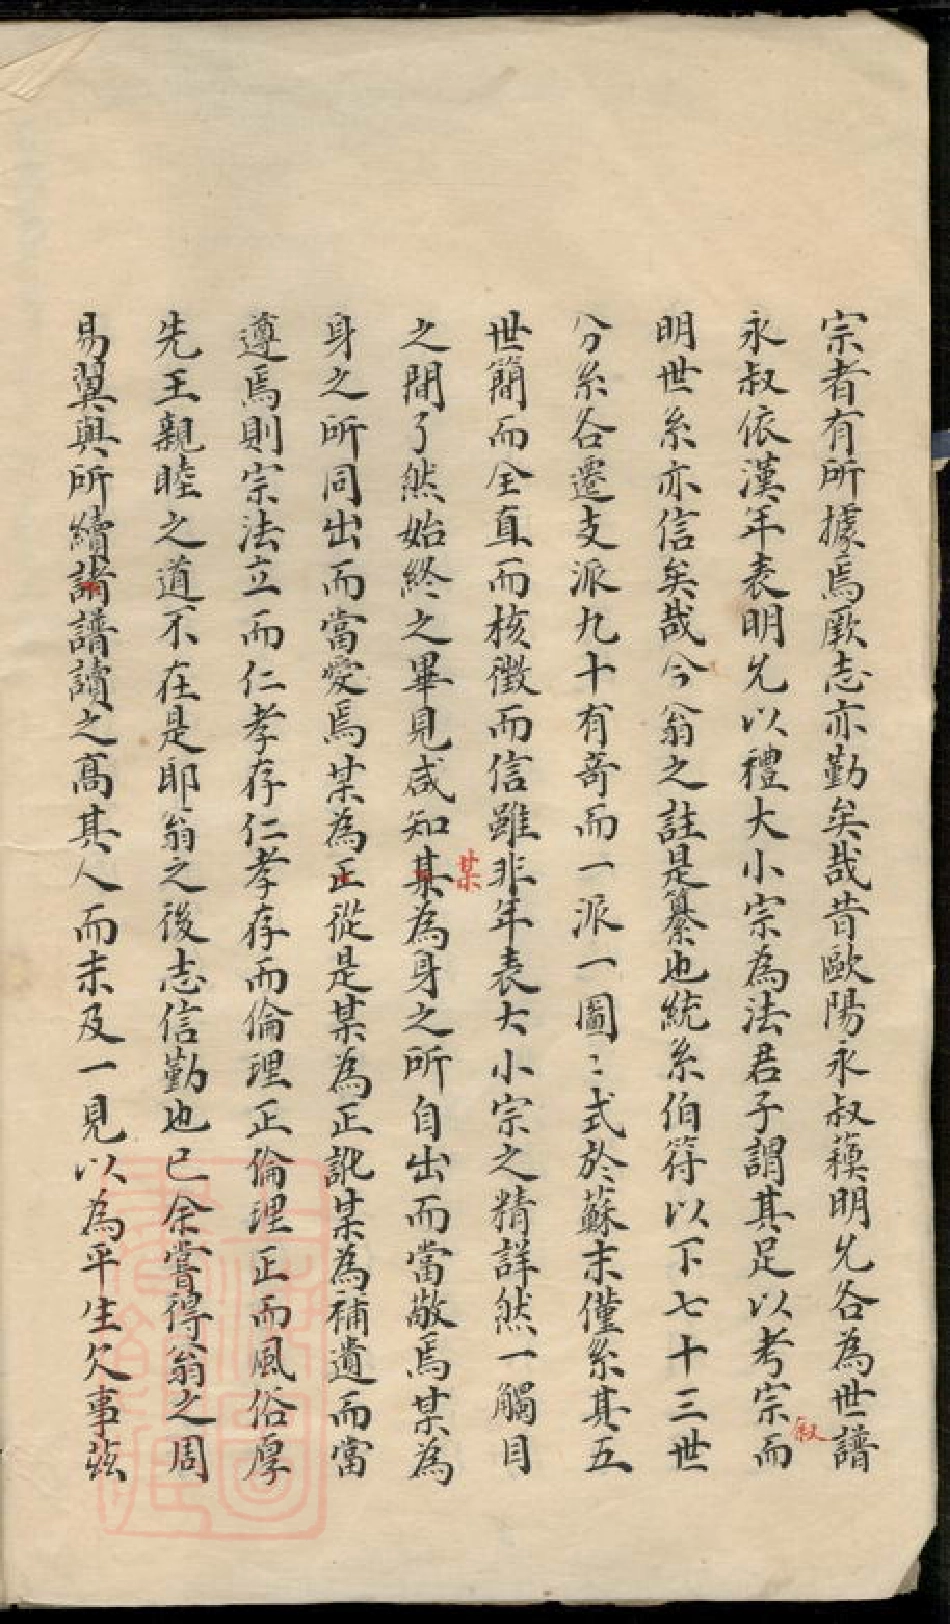 宗者有所據焉厥志亦勤矣哉昔歐陽永叔蘓明允各為世譜
叙
永叔依漢年表明允以禮大小宗為法君子謂其足以考宗而
明世系亦信矣哉今翁之註是纂也統系伯符以下七十三世
分系各遷支派九十有奇而一派一圖〻式於蘇末僅系其五
世簡而全直而核徵而信雖非年表大小宗之精詳然一觸目
某
之間了然始終之畢見咸知某為身之所自出而當敬焉某為
身之所同出而當愛焉某為正從是某為正訛某為補遺而當
遵焉則宗法立而仁孝存仁孝存而倫理正倫理正而風俗厚
先王親睦之道不在是耶翁之後志信勤也已余嘗得翁之周
易翼與所續諸譜讀之高其人而未及一見以為平生欠事茲